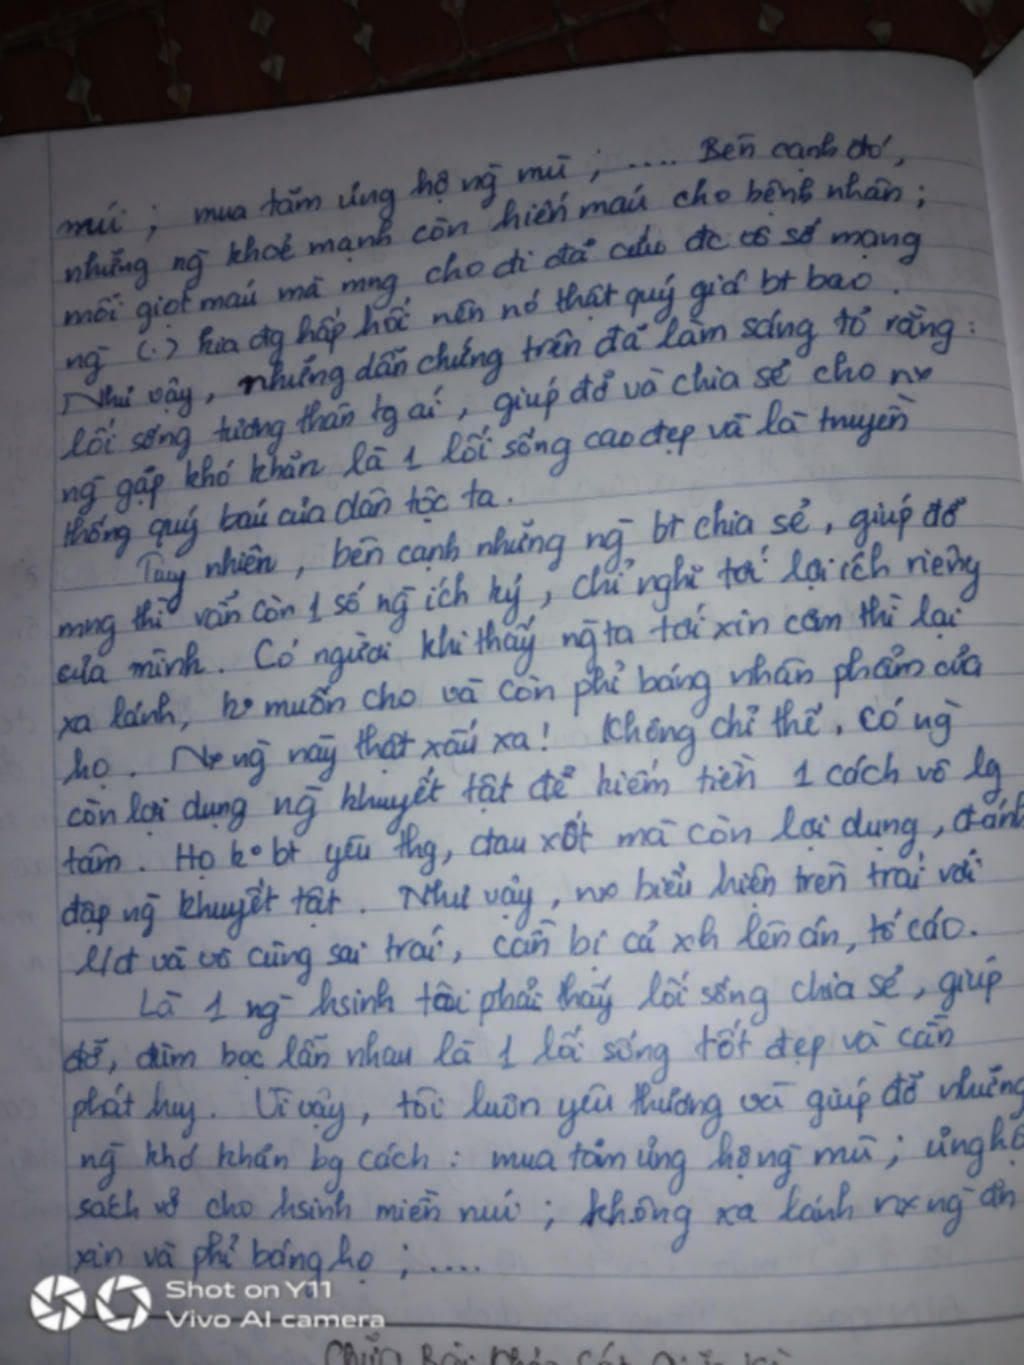 múi ; mua tăm ủng hộ ng̀ mù ; .... Bên cạnh đó,
những ng̀ khoẻ mạnh còn hiến máu cho bệnh nhân ;
mỗi giọt máu mà mng cho đi đã cứu đc số mạng
ng̀ (.) kia đg hấp hối nên nó thật quý giá bt bao .
Như vậy, những dẫn chứng trên đã làm sáng tỏ rằng :
lối sống tương thân tg ái , giúp đỡ và chia sẻ cho nx
ng̀ gặp khó khăn là 1 lối sống cao đẹp và là truyền
thống quý báu của dân tộc ta .
Tuy nhiên , bên cạnh những ng̀ bt chia sẻ , giúp đỡ
mng thì vẫn còn 1 số ng̀ ích kỷ , chỉ nghĩ tới lợi ích riêng
của mình . Có người khi thấy ng̀ ta tới xin cơm thì lại
xa lánh, ko muốn cho và còn phỉ báng nhân phẩm của
họ . Nx ng̀ này thật xấu xa! Không chỉ thế , có ng̀
còn lợi dụng ng̀ khuyết tật để kiếm tiền 1 cách vô lg
tâm . Họ ko bt yêu thg, đau xót mà còn lợi dụng , đánh
đập ng̀ khuyết tật . Như vậy , nx biểu hiện trên trái với
l/đ và vô cùng sai trái , cần bị cả xh lên án, tố cáo .
Là 1 ng̀ hsinh tôi phải thấy lối sống chia sẻ , giúp
đỡ, đùm bọc lẫn nhau là 1 lối sống tốt đẹp và cần
phát huy . Vì vậy , tôi luôn yêu thương và giúp đỡ những
ng̀ khó khăn bg cách : mua tăm ủng hộ ng̀ mù ; ủng hộ
sách vở cho hsinh miền núi ; không xa lánh nx ng̀ ăn
xin và phỉ báng họ ; ....
Shot on Y11
Vivo AI camera